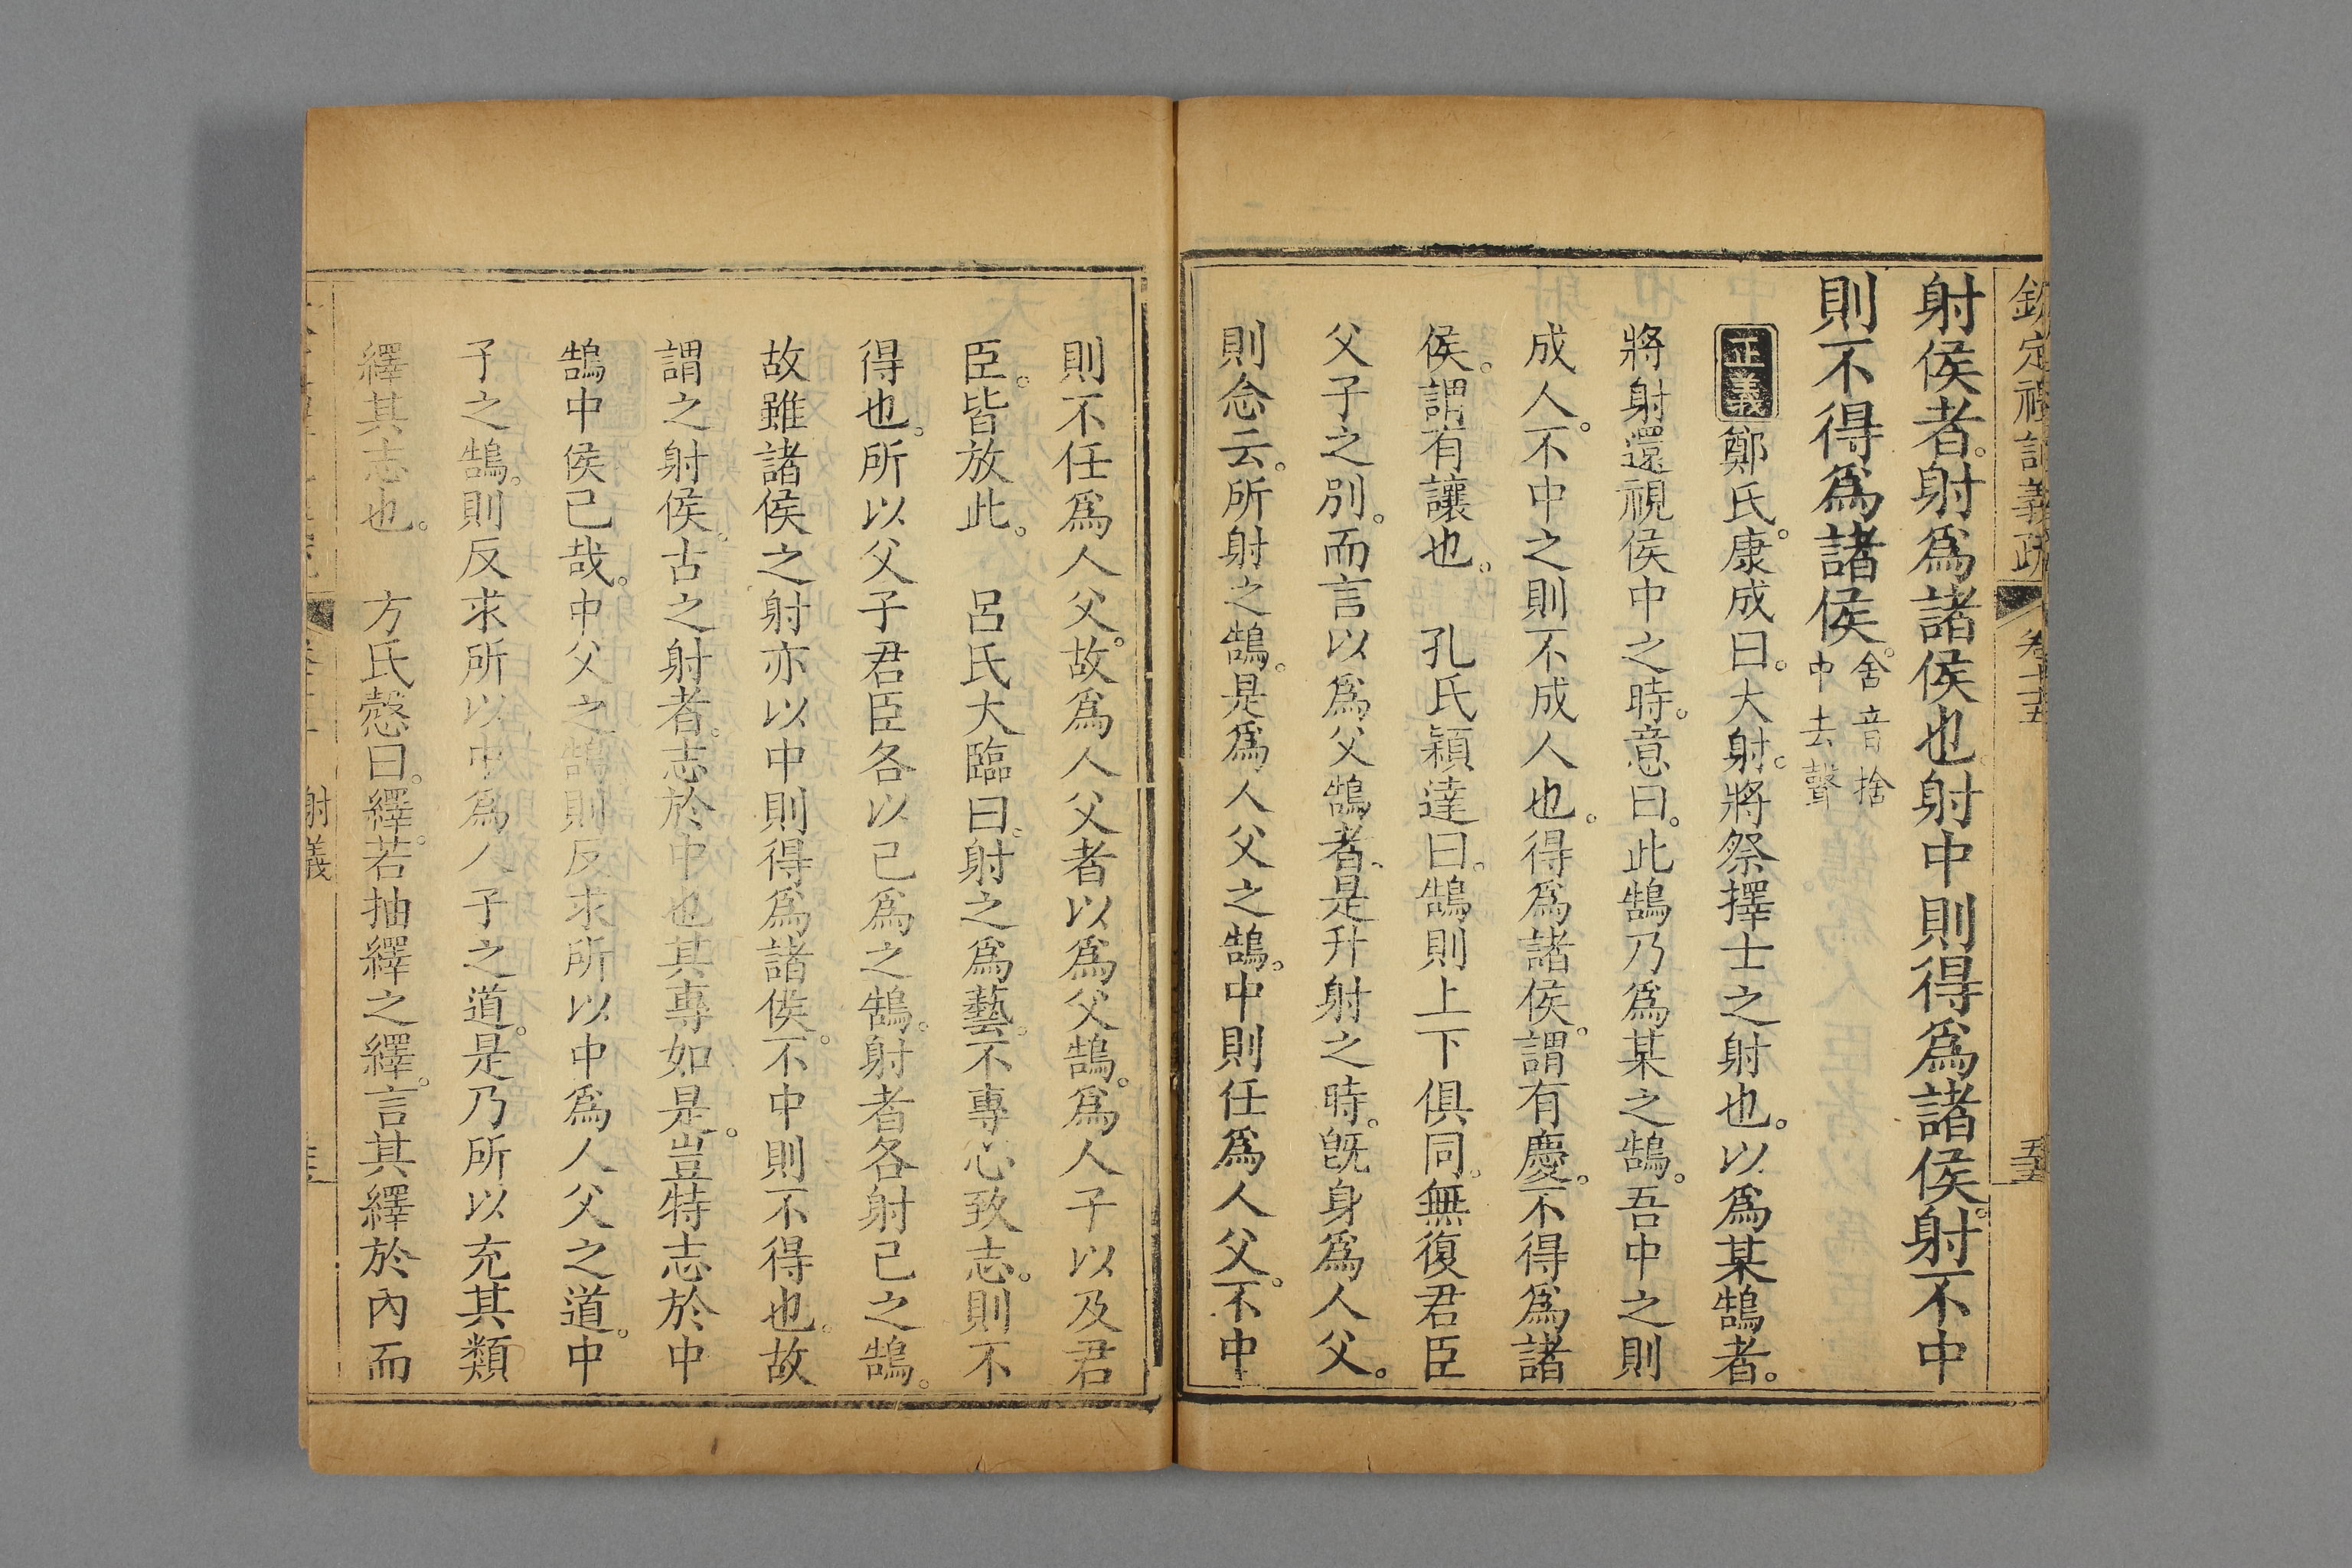 欽定禮記義疏 卷七十五
射侯者。射爲諸侯也。射中則得爲諸侯。射不中
則不得爲諸侯。舍音捨中去聲
正義鄭氏康成曰。大射。將祭擇士之射也。以爲某鵠者。
將射還視侯中之時。意曰。此鵠乃爲某之鵠。吾中之則
成人。不中之則不成人也。得爲諸侯。謂有慶。不得爲諸
侯。謂有讓也。 孔氏穎達曰。鵠則上下俱同。無復君臣
父子之別。而言以爲父鵠者。是升射之時。旣身爲人父。
則念云。所射之鵠。是爲人父之鵠。中則任爲人父。不中
則不任爲人父。故爲人父者以爲父鵠。爲人子以及君
臣。皆放此。 呂氏大臨曰。射之爲藝。不專心致志。則不
得也。所以父子君臣各以已爲之鵠。射者各射已之鵠。
故雖諸侯之射亦以中則得爲諸侯。不中則不得也。故
謂之射侯。古之射者。志於中也其專如是。豈特志於中
鵠中侯已哉。中父之鵠則反求所以中爲人父之道。中
子之鵠。則反求所以中爲人子之道。是乃所以充其類
繹其志也。 方氏慤曰。繹。若抽繹之繹。言其繹於內而
射義